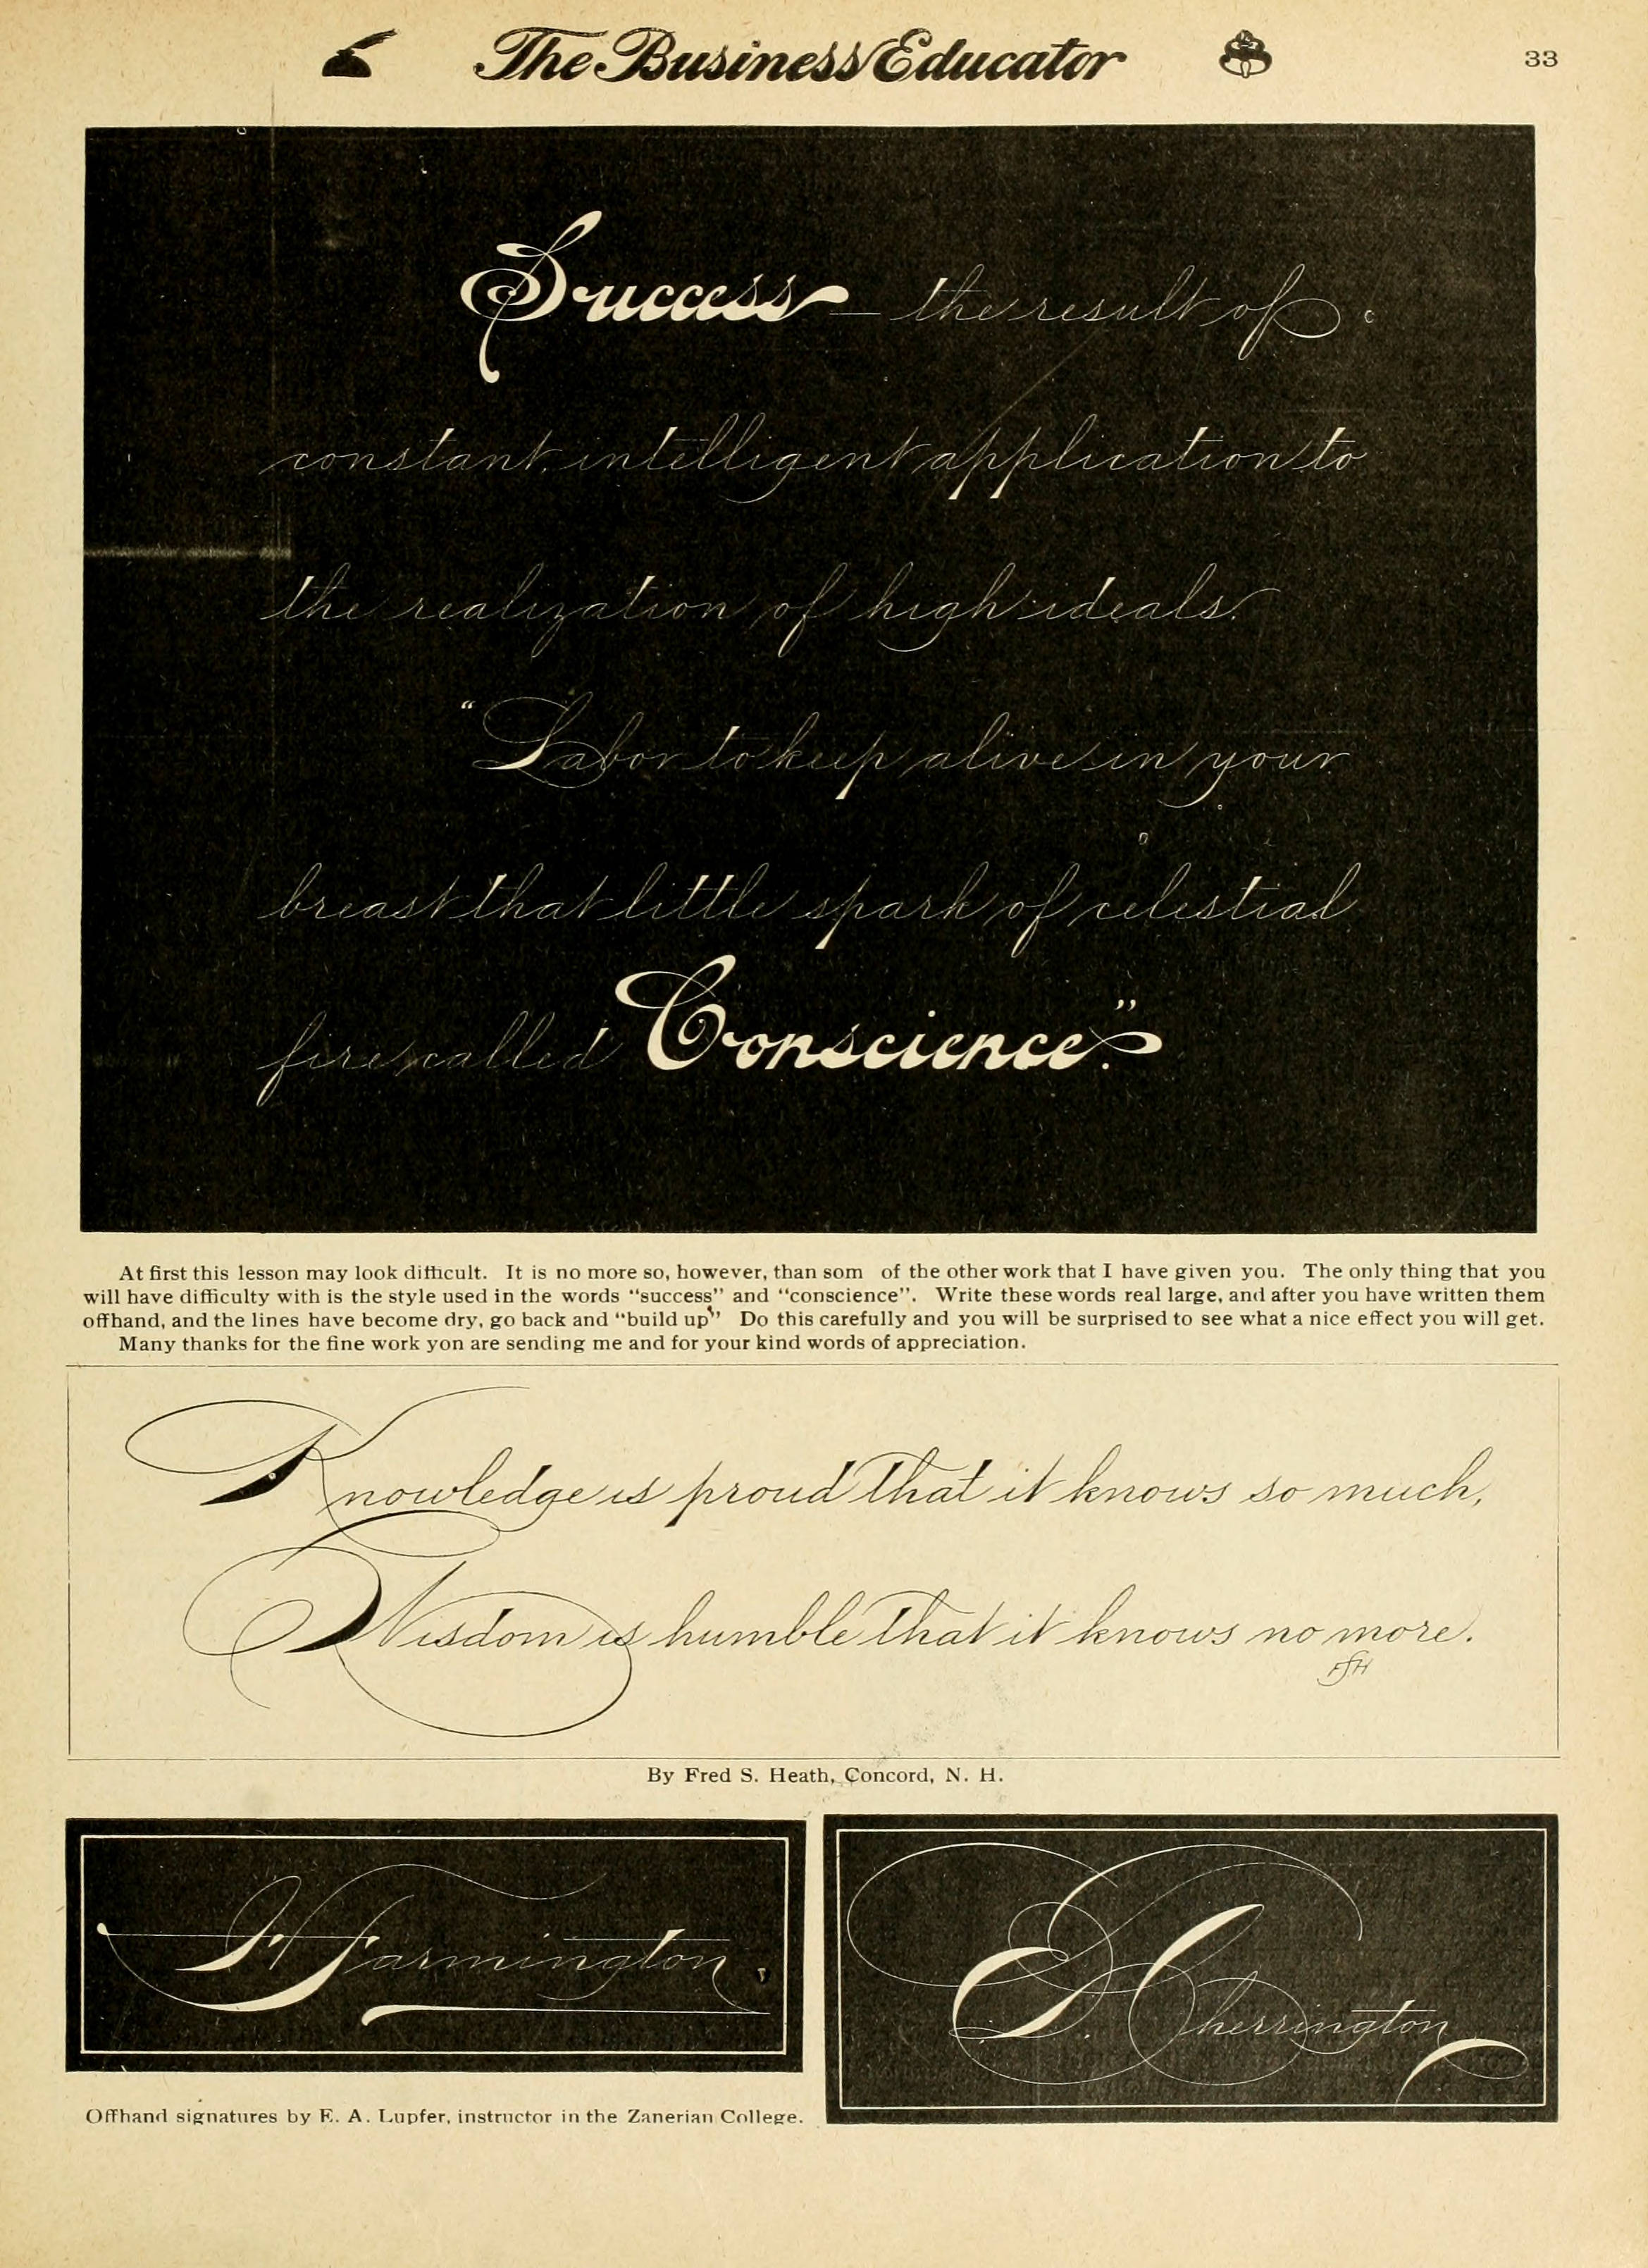 The Business Educator 33
Success — the result of
constant, intelligent application to
the realization of high ideals.
"Labor to keep alive in your
breast that little spark of celestial
fire called Conscience."
At first this lesson may look difficult. It is no more so, however, than som of the other work that I have given you. The only thing that you
will have difficulty with is the style used in the words "success" and "conscience". Write these words real large, and after you have written them
offhand, and the lines have become dry, go back and "build up" Do this carefully and you will be surprised to see what a nice effect you will get.
Many thanks for the fine work yon are sending me and for your kind words of appreciation.
Knowledge is proud that it knows so much,
Wisdom is humble that it knows no more.
FSH
By Fred S. Heath, Concord, N. H.
H Farmington.
E. D. Cherrington
Offhand signatures by E. A. Lupfer, instructor in the Zanerian College.